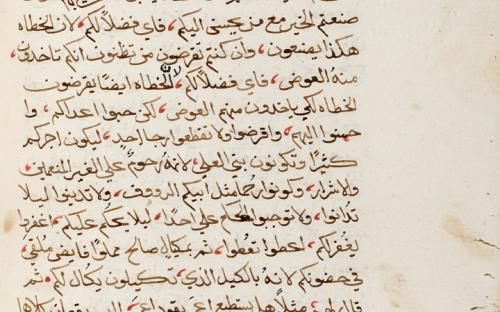 صنعتم الخير مع من يحسن اليكم، فاي فضلاً لكم، لان الخطاه
هكذا يصنعون، وان كنتم تقرضون من تظنون انكم تاخذون
منه العوض، فاي فضلاً لكم، لان الخطاه ايضًا يقرضون
الخطاه لكي ياخدون منهم العوض، لكن حبوا اعداكم، وا
حسنوا اليهم، واقرضوا ولا تقطعوا رجا احدٍ، ليكون اجركم
كثيرًا وتكونون بني العلي، لانه رحومٌ علي الغير المنعمين
والاشرار، وكونوا رحما مثل ابيكم الرووف، ولا تدينوا ليلا
تدانوا، ولا توجبوا الحكم علي احدًا، ليلا يحكم عليكم، اغفروا
يغفر لكم، اعطوا تعطوا، ثم بمكيالٍ صالح مملوًا فايض ملقي
في حضونكم لانه بالكيل الذي تكيلون يكال لكم، ثم
قال لهم مثلاً هل يستطيع اعمَي يقود اعمَي